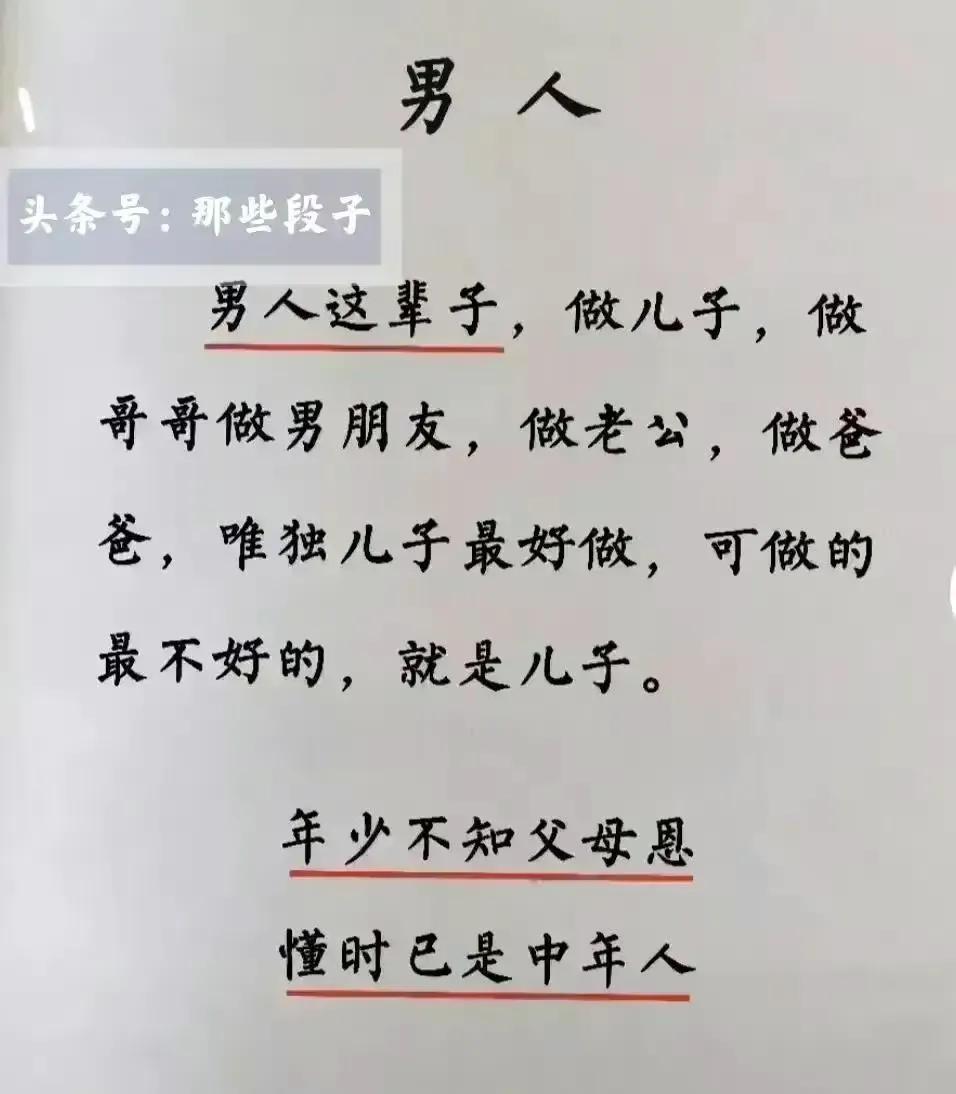 男人
头条号：那些段子
男人这辈子，做儿子，做
哥哥做男朋友，做老公，做爸
爸，唯独儿子最好做，可做的
最不好的，就是儿子。
年少不知父母恩
懂时已是中年人